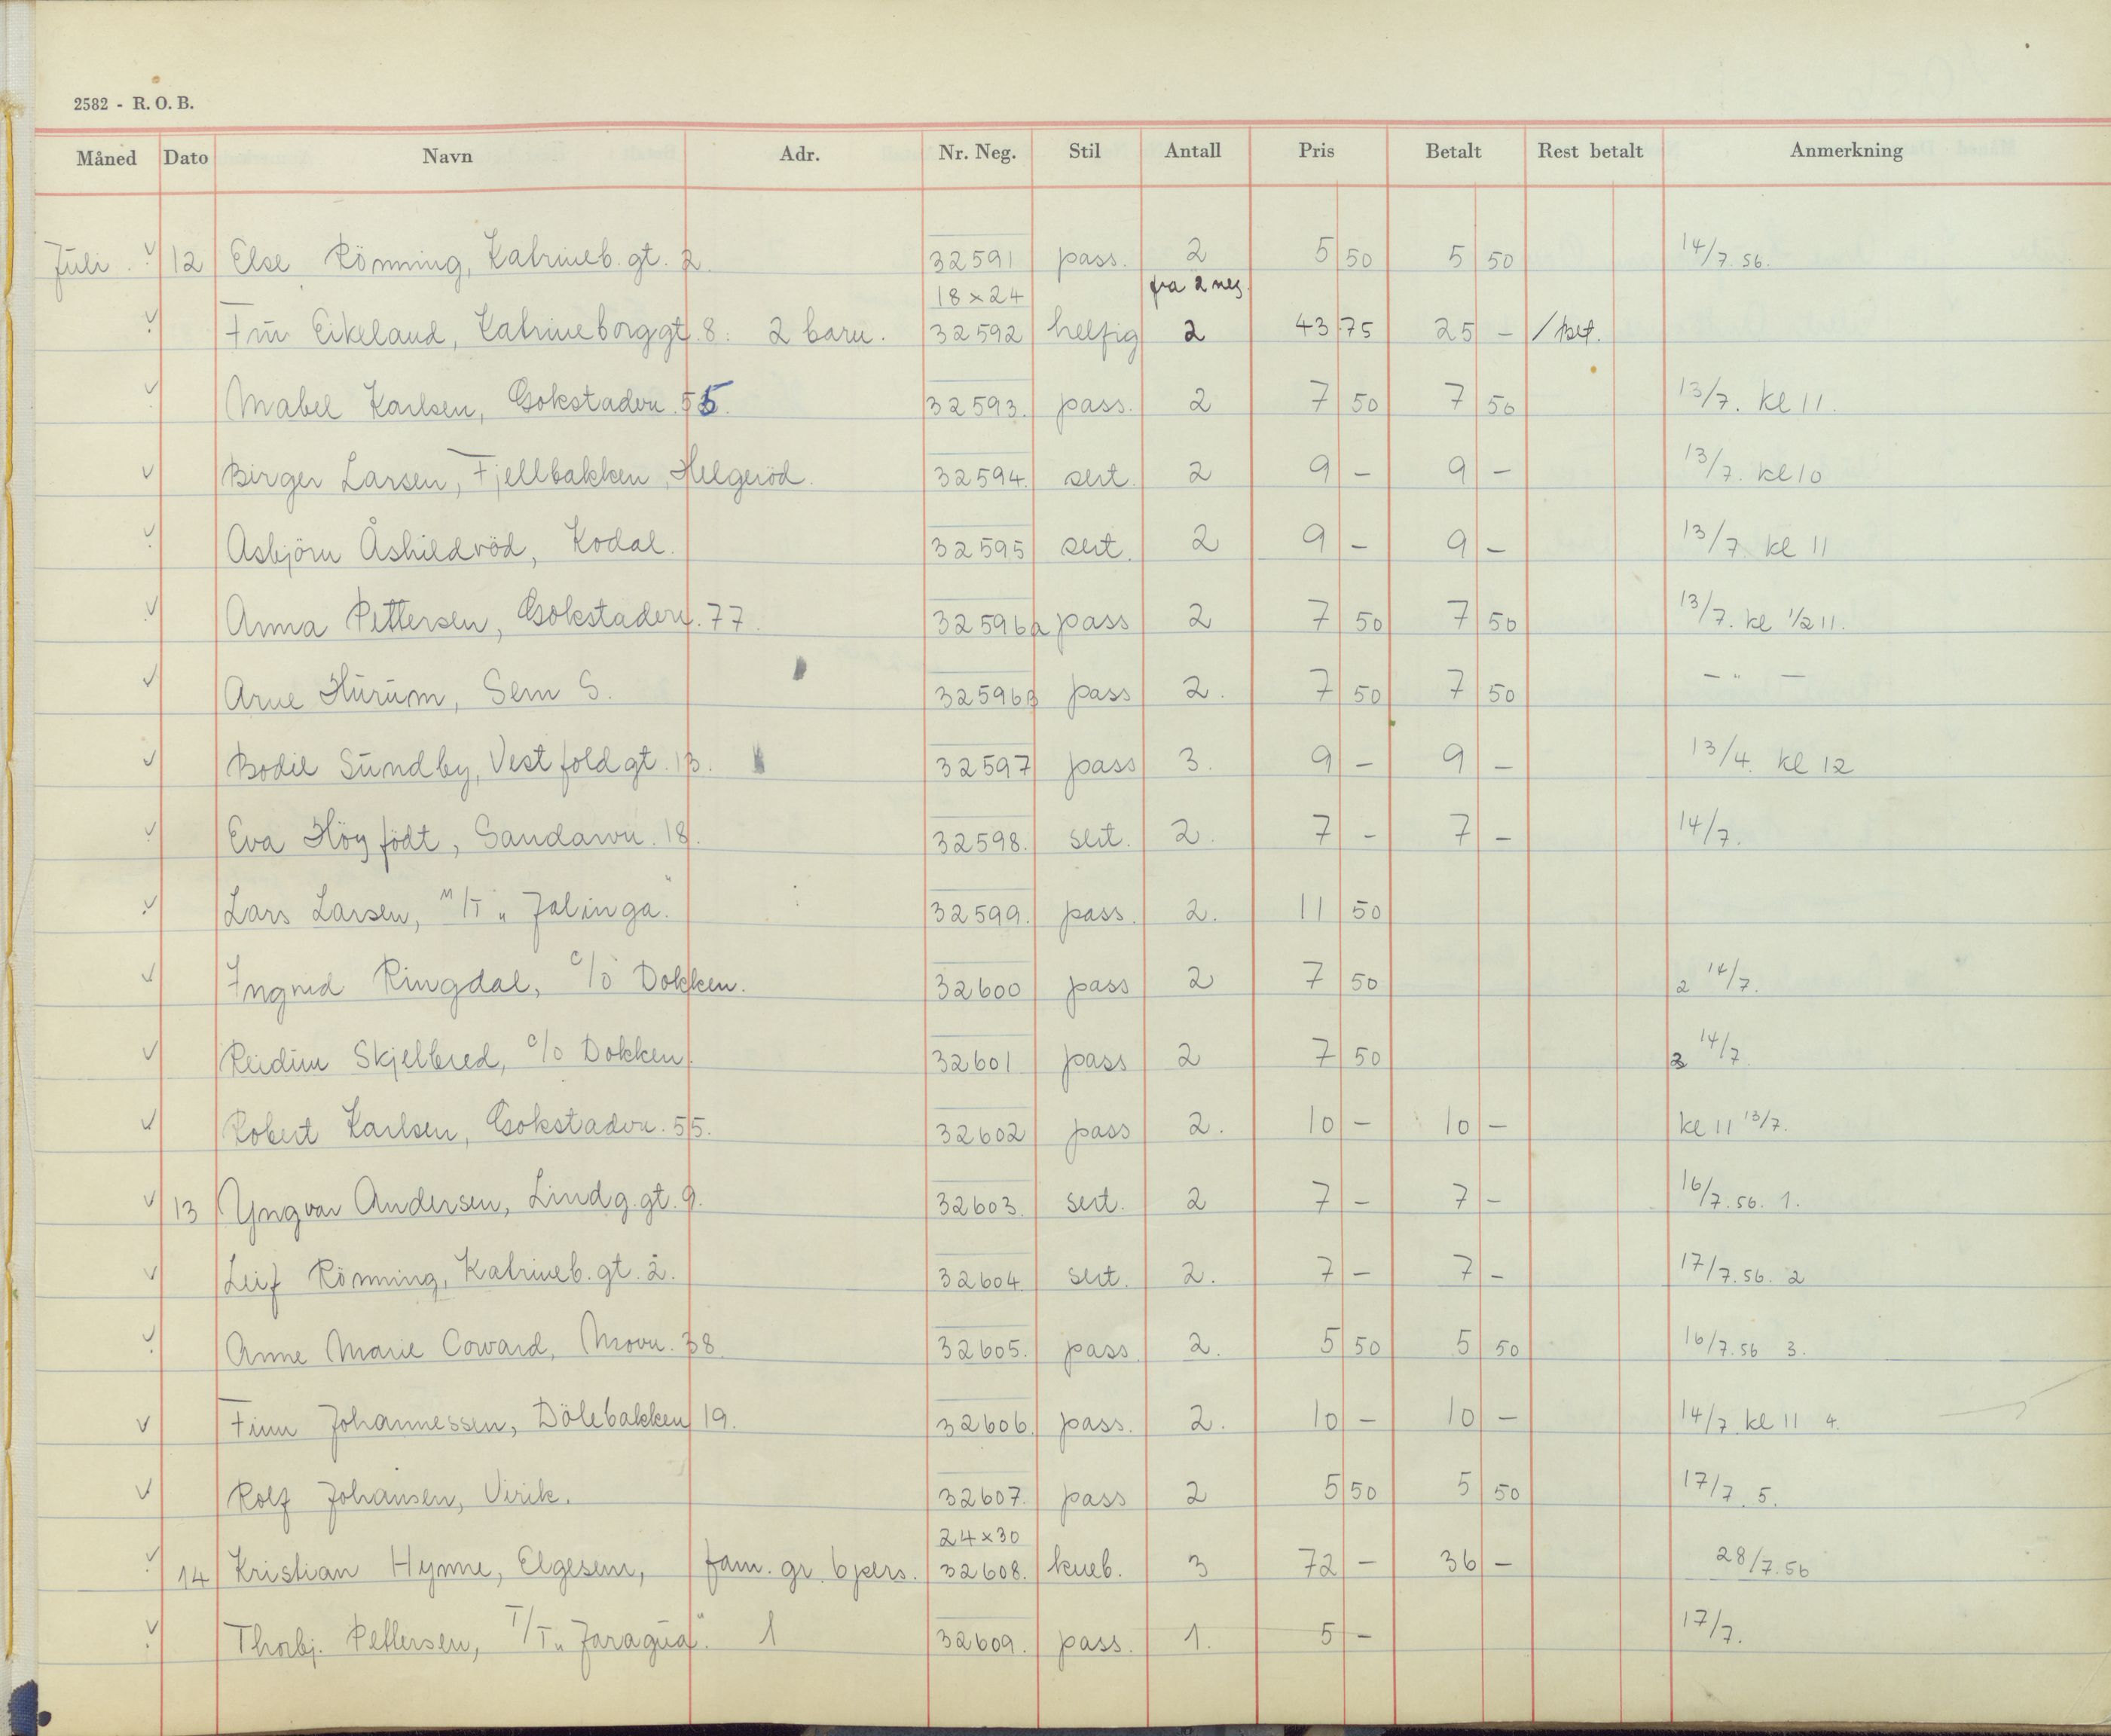 2582 - R. O. B.
Måned Dato Navn Adr. Nr. Neg. Stil Antall Pris Betalt Rest betalt Anmerkning
Juli. √ 12 Else Rönning, Katrineb. gt. 2. 32591 pass. 2 5 50 5 50 14/7. 56.
18 x 24 fra 2 neg.
√ Fru Eikeland, Katrineborggt. 8. 2 barn. 32592 helfig 2 43 75 25 - / Bet.
√ Mabel Karlsen, Gokstadvn. 55. 32593. pass. 2 7 50 7 50 13/7. kl 11.
√ Birger Larsen, Fjellbakken, Helgeröd. 32594. sert. 2 9 - 9 - 13/7. kl 10
√ Asbjörn Åshildröd, Kodal. 32595 sert. 2 9 - 9 - 13/7. kl 11
√ Anna Pettersen, Gokstadvn. 77. 32596a pass 2 7 50 7 50 13/7. kl 1/2 11.
√ Arne Hurum, Sem S. 32596B pass 2. 7 50 7 50 - " -
√ Bodil Sundby, Vestfoldgt. 13. 32597 pass 3. 9 - 9 - 13/4. kl 12
√ Eva Högfödt, Sandarvn. 18. 32598. sert. 2. 7 - 7 - 14/7.
√ Lars Larsen, M/T „Jalinga". 32599. pass. 2. 11 50
√ Ingrid Ringdal, c/o Dokken. 32600 pass 2 7 50 2 14/7.
√ Reidun Skjelbred, c/o Dokken. 32601 pass 2 7 50 14/7
√ Robert Karlsen, Gokstadvn. 55. 32602 pass 2. 10 - 10 - kl 11 13/7.
√ 13 Yngvar Andersen, Lindg. gt. 9. 32603. sert. 2 7 - 7 - 16/7. 56. 1.
√ Leif Rönning, Katrineb. gt. 2. 32604. sert. 2. 7 - 7 - 17/7. 56. 2
√ Anne Marie Coward, Movn. 38. 32605. pass 2. 5 50 5 50 16/7. 56 3.
√ Finn Johannessen, Dölebakken 19. 32606. pass. 2. 10 - 10 - 14/7. kl 11 4.
√ Rolf Johansen, Virik. 32607. pass 2 5 50 5 50 17/7. 5.
24 x 30
√ 14 Kristian Hymne, Elgesem, fam. gr. 6 pers. 32608. kneb. 3 72 - 36 - 28/7. 56
√ Thorbj. Pettersen, T/T „Jaragua". 1 32609. pass. 1. 5 - 17/7.